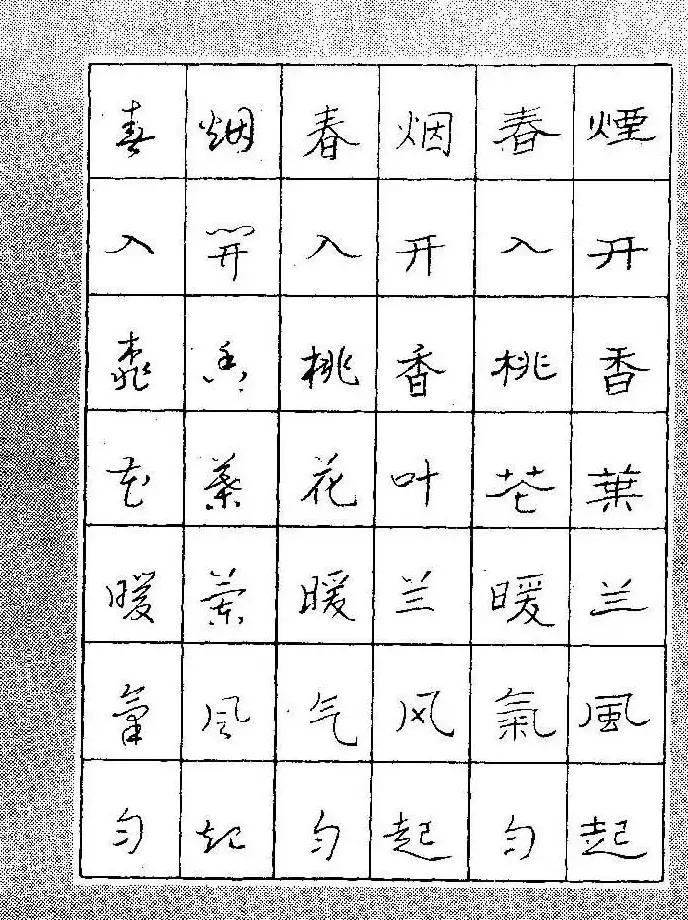 煙开香葉兰風起
春入桃花暖氣匀
烟开香叶兰风起
春入桃花暖气匀
烟開香葉蘭风起
春入桃花暖氣匀